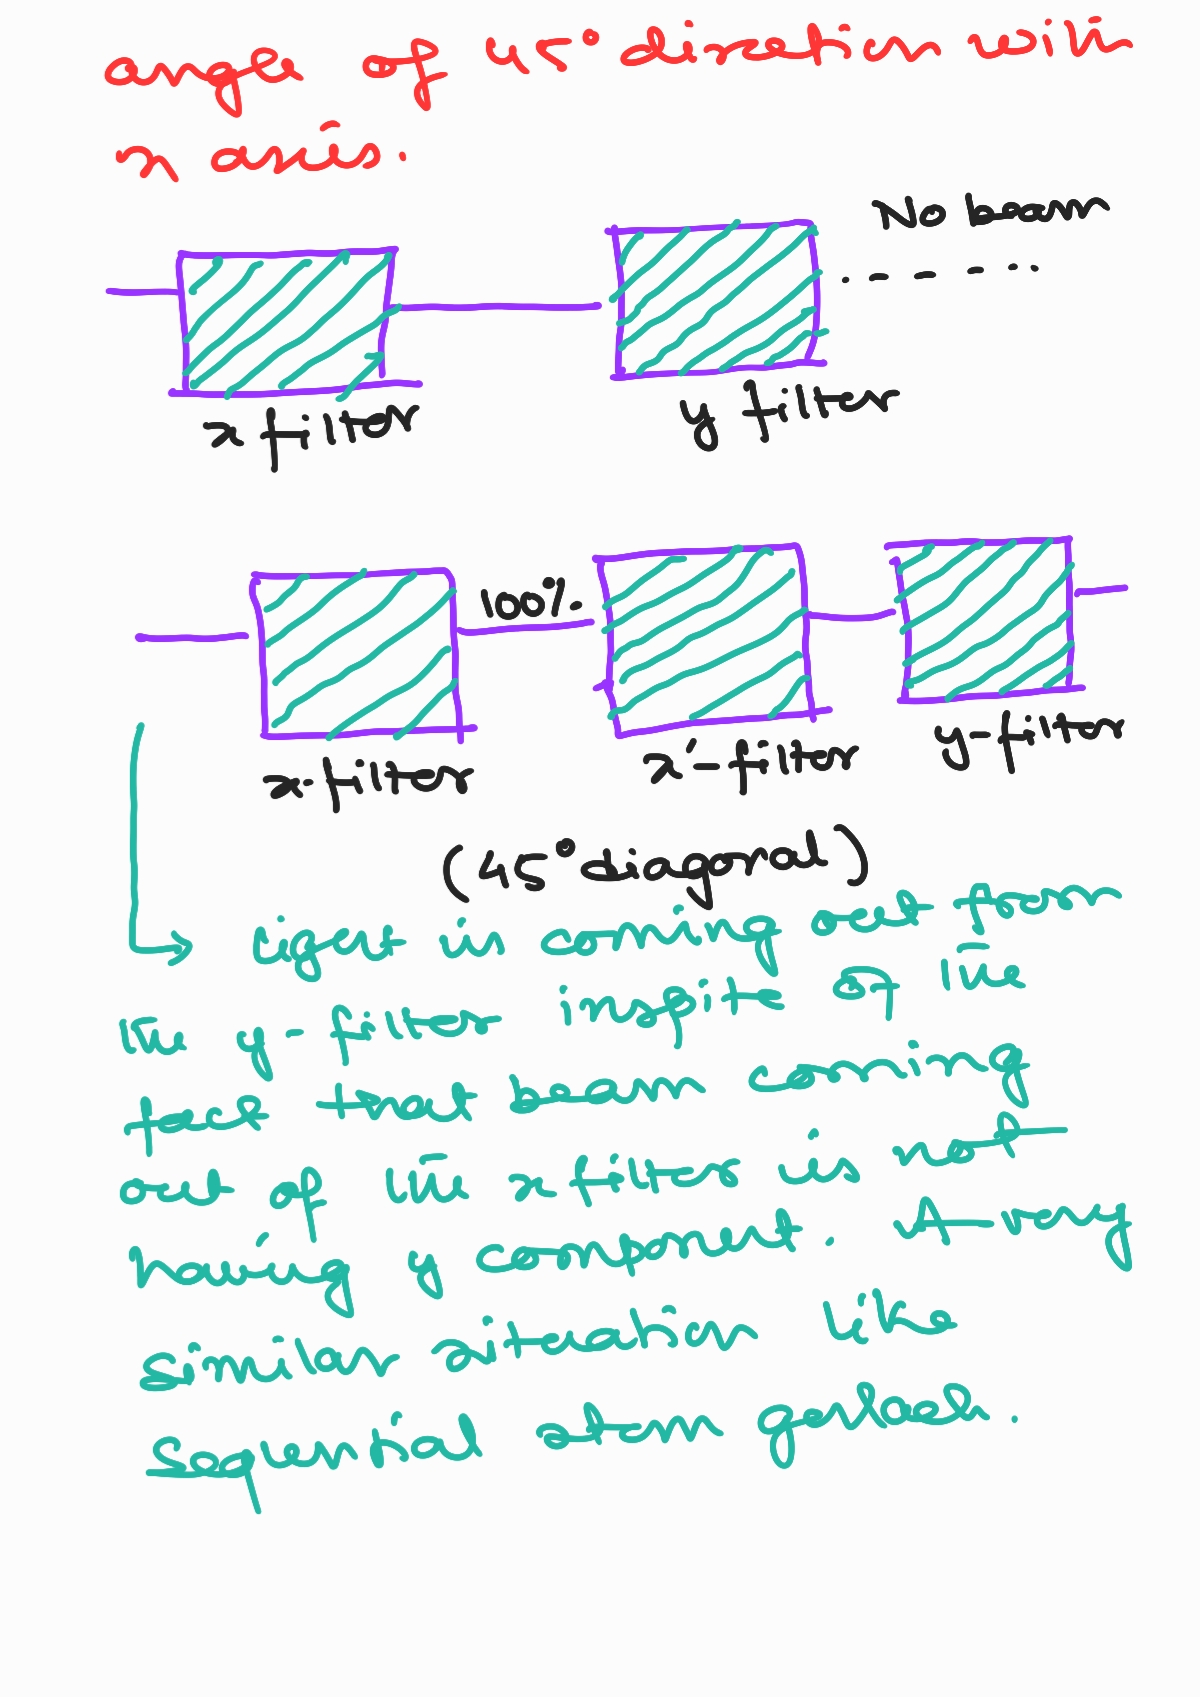 angle of 45° direction with
x axis.
No beam
x filter
y filter
100%
x-filter
x'-filter
y-filter
(45° diagonal)
Light is coming out from
the y-filter inspite of the
fact that beam coming
out of the x filter is not
having y component. A very
similar situation like
sequential stern gerlach.